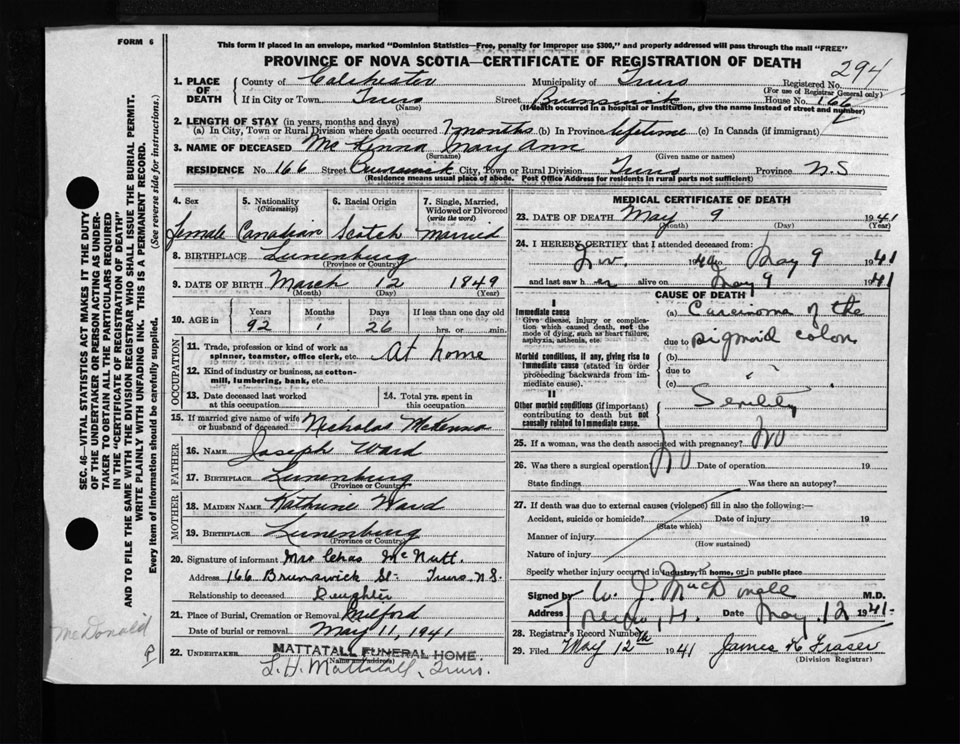 FORM 6
This form if placed in an envelope, marked "Dominion Statistics—Free, penalty for improper use $300," and properly addressed will pass through the mail "FREE"
PROVINCE OF NOVA SCOTIA—CERTIFICATE OF REGISTRATION OF DEATH
294
1. PLACE OF DEATH
County of Colchester Municipality of Truro Registered No.
(For use of Registrar General only)
If in City or Town Truro Street Brunswick House No. 166
(Name) (If death occurred in a hospital or institution, give the name instead of street and number)
2. LENGTH OF STAY (in years, months and days)
(a) In City, Town or Rural Division where death occurred 7 months (b) In Province lifetime (c) In Canada (if immigrant)
3. NAME OF DECEASED McKenna Mary Ann
(Surname) (Given name or names)
RESIDENCE No. 166 Street Brunswick City, Town or Rural Division Truro Province N.S
(Residence means usual place of abode. Post Office Address for residents in rural parts not sufficient)
4. Sex 5. Nationality (Citizenship) 6. Racial Origin 7. Single, Married, Widowed or Divorced (write the word)
Female Canadian Scotch Married
8. BIRTHPLACE Lunenburg
(Province or Country)
9. DATE OF BIRTH March 12 1849
(Month) (Day) (Year)
10. AGE in Years Months Days If less than one day old
92 1 26 hrs. or min.
OCCUPATION
11. Trade, profession or kind of work as spinner, teamster, office clerk, etc. At home
12. Kind of industry or business, as cotton-mill, lumbering, bank, etc.
13. Date deceased last worked at this occupation
14. Total yrs. spent in this occupation
15. If married give name of wife or husband of deceased Nicholas McKenna
FATHER
16. NAME Joseph Ward
17. BIRTHPLACE Lunenburg
(Province or Country)
MOTHER
18. MAIDEN NAME Katherine Ward
19. BIRTHPLACE Lunenburg
(Province or Country)
20. Signature of informant Mrs Chas McNutt
Address 166 Brunswick St- Truro N.S.
Relationship to deceased Daughter
21. Place of Burial, Cremation or Removal Milford
Date of burial or removal May 11, 1941
22. UNDERTAKER MATTATALL FUNERAL HOME.
(Name and address)
L. H. Mattatall, Truro.
MEDICAL CERTIFICATE OF DEATH
23. DATE OF DEATH May 9 1941
(Month) (Day) (Year)
24. I HEREBY CERTIFY that I attended deceased from:
1940 to May 9 1941
and last saw h er alive on May 9 1941
CAUSE OF DEATH
I
Immediate cause
Give disease, injury or complication which caused death, not the mode of dying, such as heart failure, asphyxia, asthenia, etc.
(a) Carcinoma of the
due to sigmoid colon
Morbid conditions, if any, giving rise to immediate cause (stated in order proceeding backwards from immediate cause).
(b)
due to
(c)
II
Other morbid conditions (if important) contributing to death but not causally related to immediate cause.
Senility
25. If a woman, was the death associated with pregnancy? No
26. Was there a surgical operation? No Date of operation 19
State findings Was there an autopsy?
27. If death was due to external causes (violence) fill in also the following:—
Accident, suicide or homicide? Date of injury 19
(State which)
Manner of injury
(How sustained)
Nature of injury
Specify whether injury occurred in industry, in home, or in public place
Signed by W. J. MacDonald M.D.
Address Date May 12 1941
28. Registrar's Record Number
29. Filed May 12th 1941 James K Fraser
(Division Registrar)
SEC. 46—VITAL STATISTICS ACT MAKES IT THE DUTY
OF THE UNDERTAKER OR PERSON ACTING AS UNDER-
TAKER TO OBTAIN ALL THE PARTICULARS REQUIRED
IN THE "CERTIFICATE OF REGISTRATION OF DEATH"
AND TO FILE THE SAME WITH THE DIVISION REGISTRAR WHO SHALL ISSUE THE BURIAL PERMIT.
WRITE PLAINLY WITH UNFADING INK. THIS IS A PERMANENT RECORD.
Every item of information should be carefully supplied. (See reverse side for instructions.)
McDonald